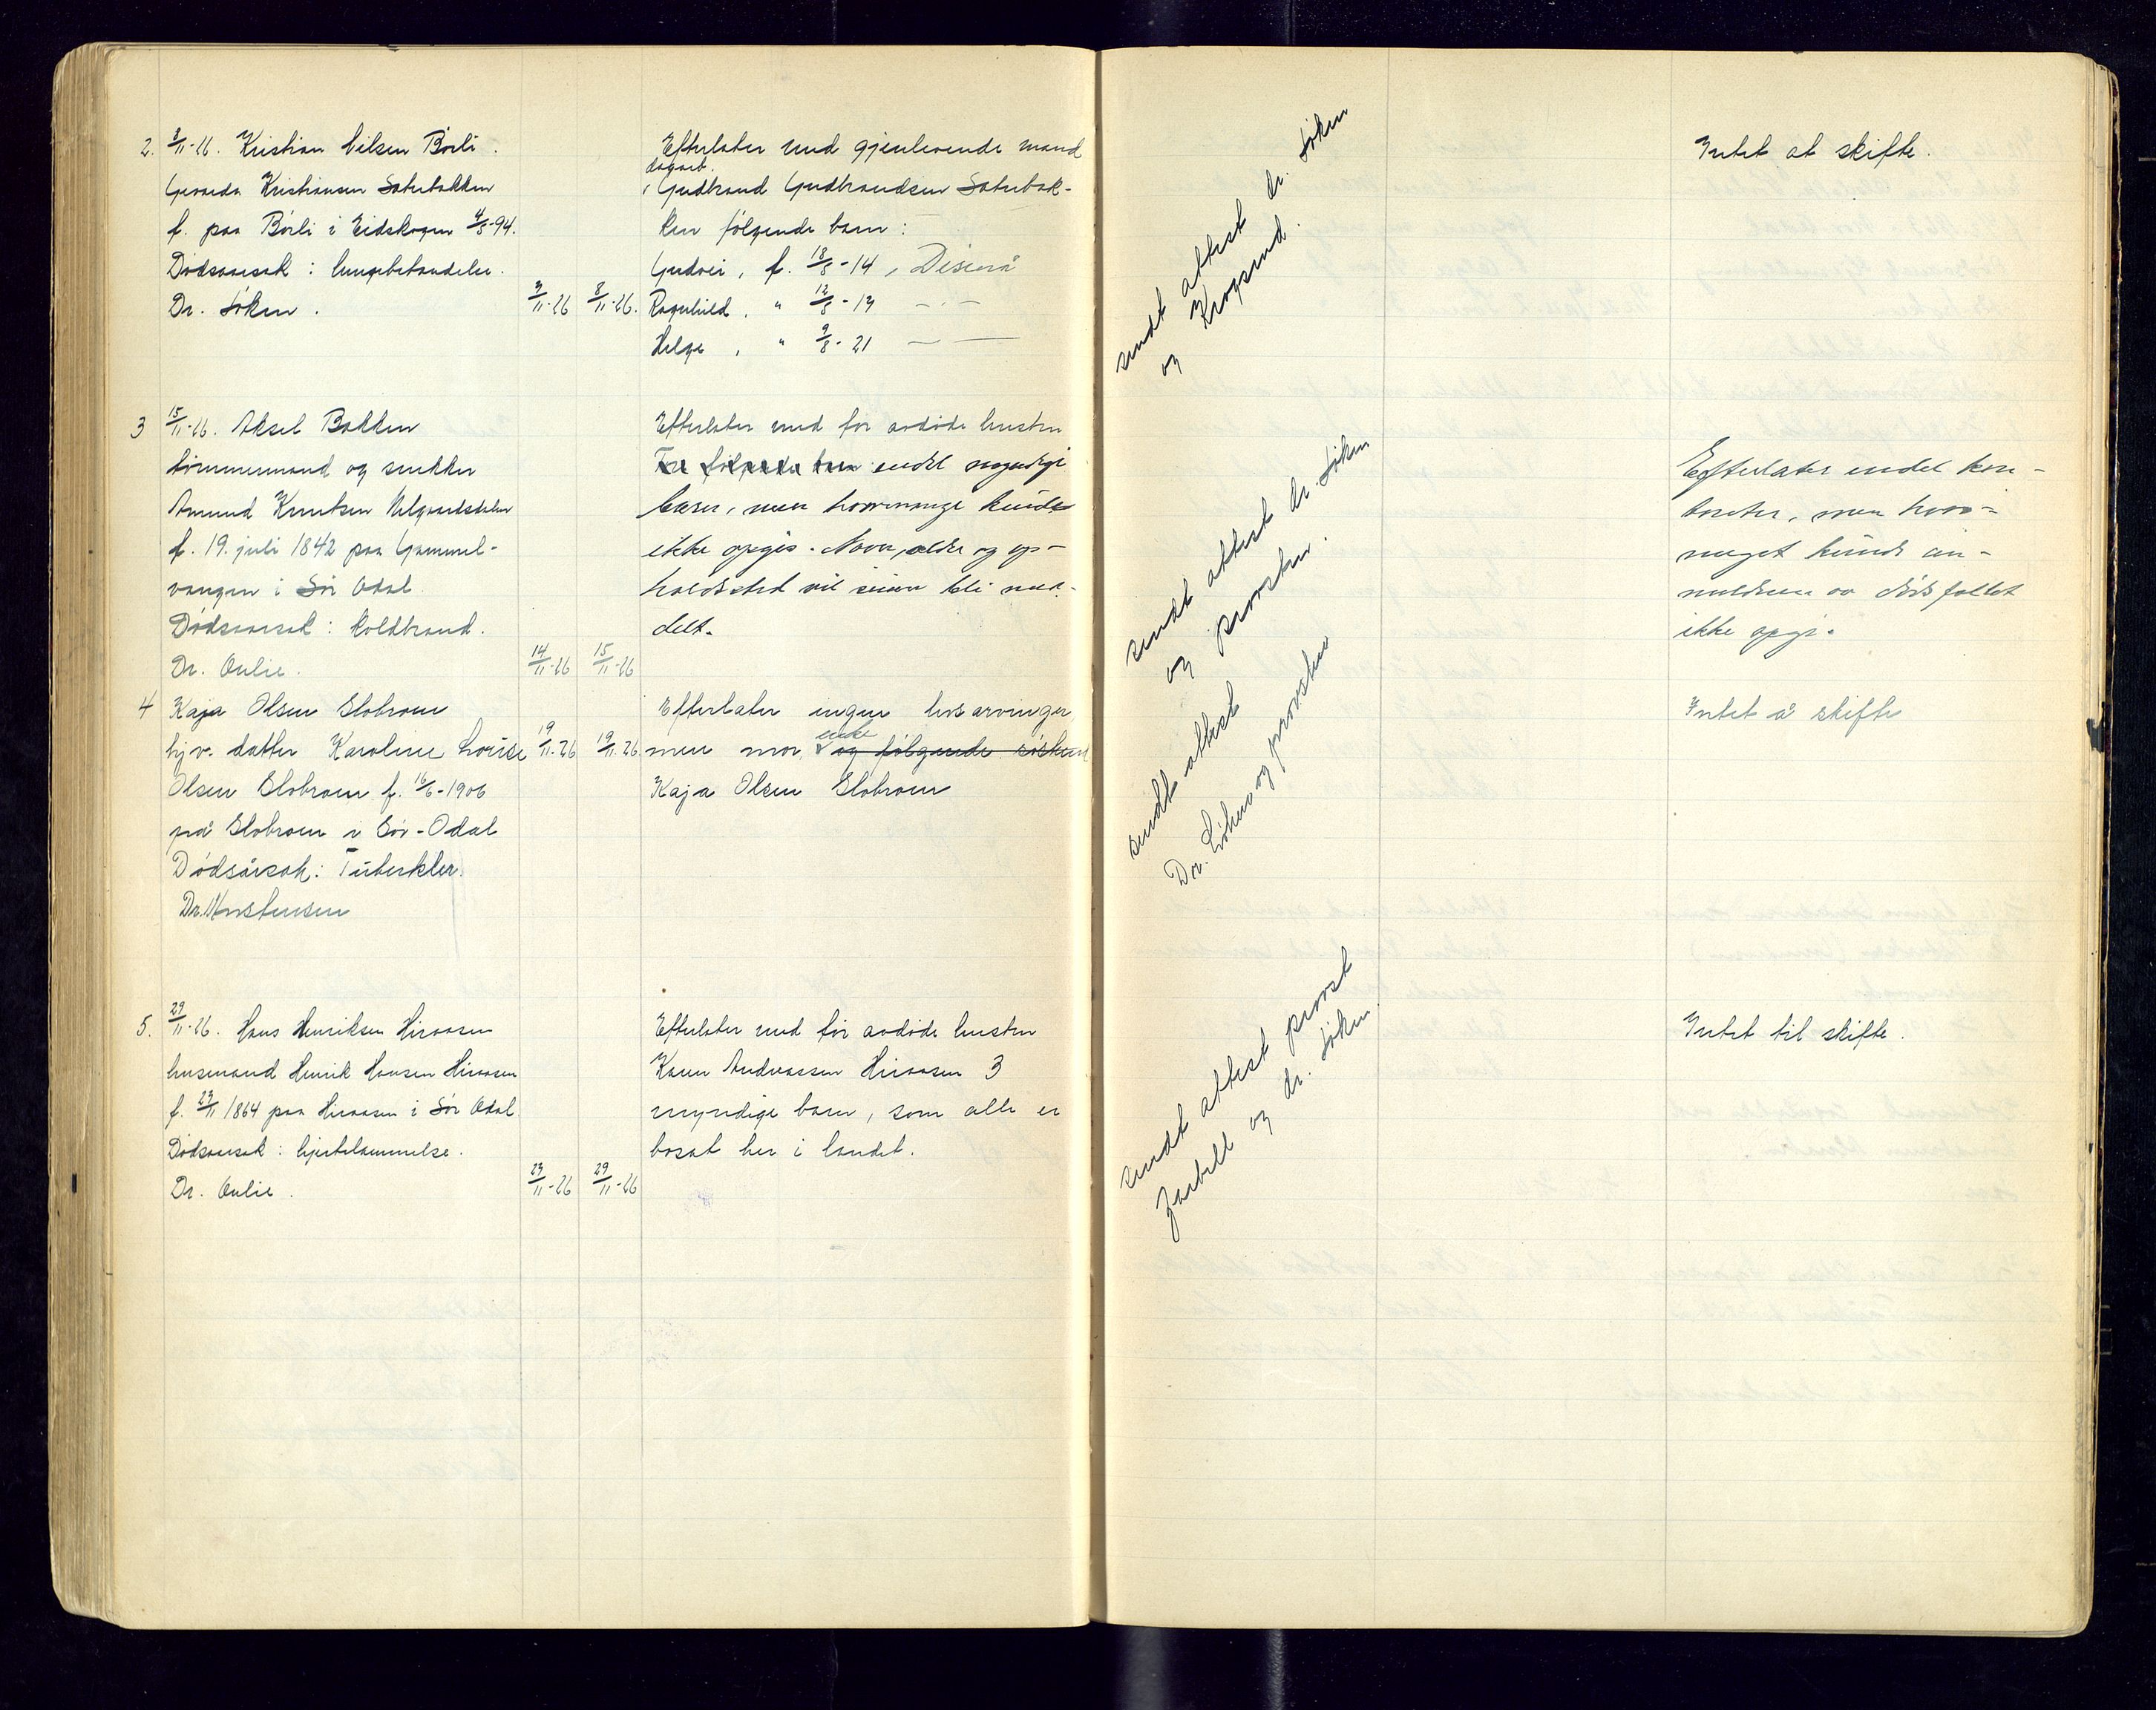 2. 8/11-26. Kristian Nilsen Børli.
Gerarda Kristiansen Sæterbakken
f. paa Børli i Eidskogen 4/8-94.
Dødsaarsak: lungebetændelse.
Dr. Søken. 3/11-26 8/11-26.
Efterlater med gjenlevende mand
dagarb.
Gudbrand Gudbrandsen Sæterbak-
ken følgende barn:
Gudvei, f. 18/8-14, Disenå
Ragnhild, " 12/8-17 — " —
Helge, " 9/8-21 — —
sendt attest dr. Søken
og Krogsrud.
Intet at skifte.
3 15/11-26. Aksel Bakken
tømmermand og snekker
Amund Knutsen Helgaardsdalen
f. 19. juli 1842 paa Gammel-
vangen i Sør Odal.
Dødsaarsak: koldbrand.
Dr. Oulie. 14/11-26 15/11-26
Efterlater med før avdøde hustru
endel myndige
barn, men hvormange kunde
ikke opgis. Navn, alder og op-
holdssted vil senere bli med-
delt.
sendt attest dr. Søken
og provsten.
Efterlater endel kon-
tanter, men hvor-
meget kunde an-
melderen av dødsfallet
ikke opgi.
4 Kaja Olsen Slobraaten
hjv. datter Karoline Louise 19/11-26 19/11-26
Olsen f. 16/6-1906
på i Sør-Odal
Dødsårsak: Tuberkler.
Dr. Kristensen
Efterlater ingen livsarvinger
enke
men mor, og følgende søsken
Kaja Olsen
sendt attest
Dr. Søken og provsten
Intet å skifte
5. 29/11-26. Hans Henriksen Hiraasen
husmand Henrik Hansen Hiraasen
f. 27/11 1864 paa Hiraasen i Sør Odal
Dødsaarsak: hjertelammelse.
Dr. Oulie. 27/11-26 29/11-26
Efterlater med før avdøde hustru
Karen Andreassen Hiraasen 3
myndige barn, som alle er
bosat her i landet.
sendt attest provst
og dr. Søken
Intet til skifte.